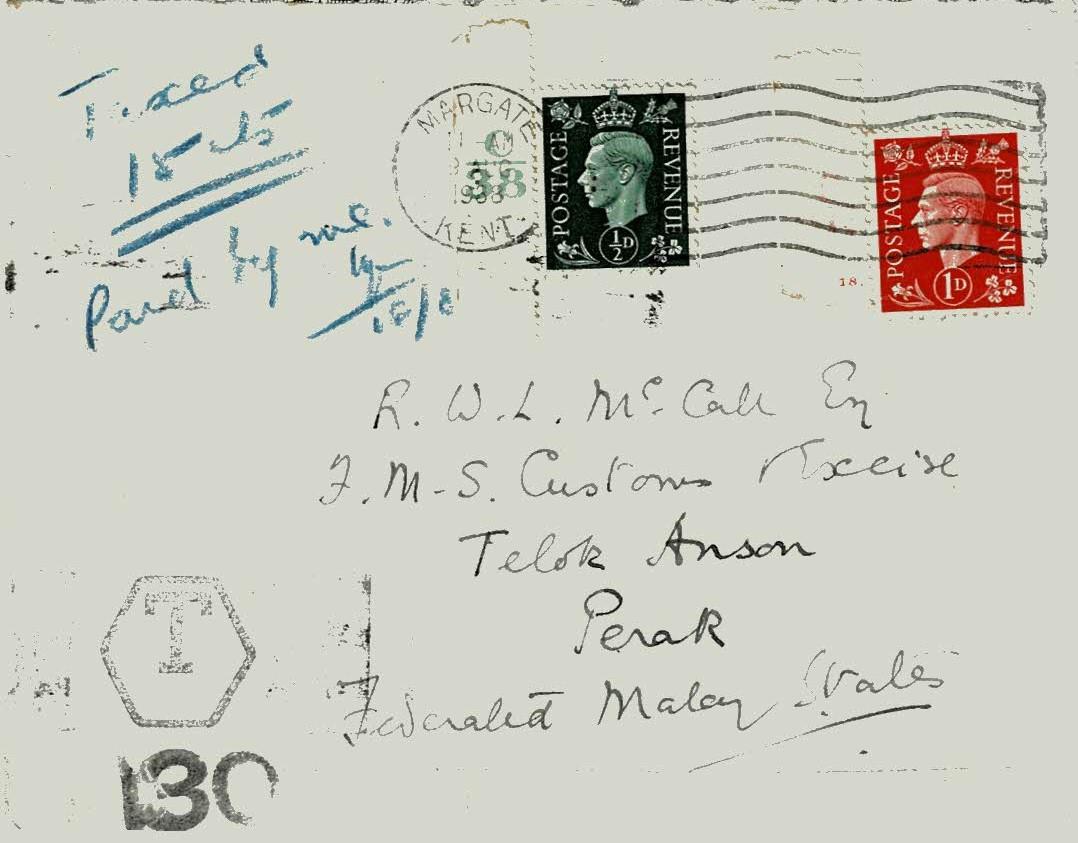 Taxed
15 cts
Paid by me.
MARGATE
1938
KENT
C
38
POSTAGE REVENUE
½D
POSTAGE REVENUE
1D
18.
R. W. L. McCall Esq
F. M. S. Customs & Excise
Telok Anson
Perak
Federated Malay States
T
130